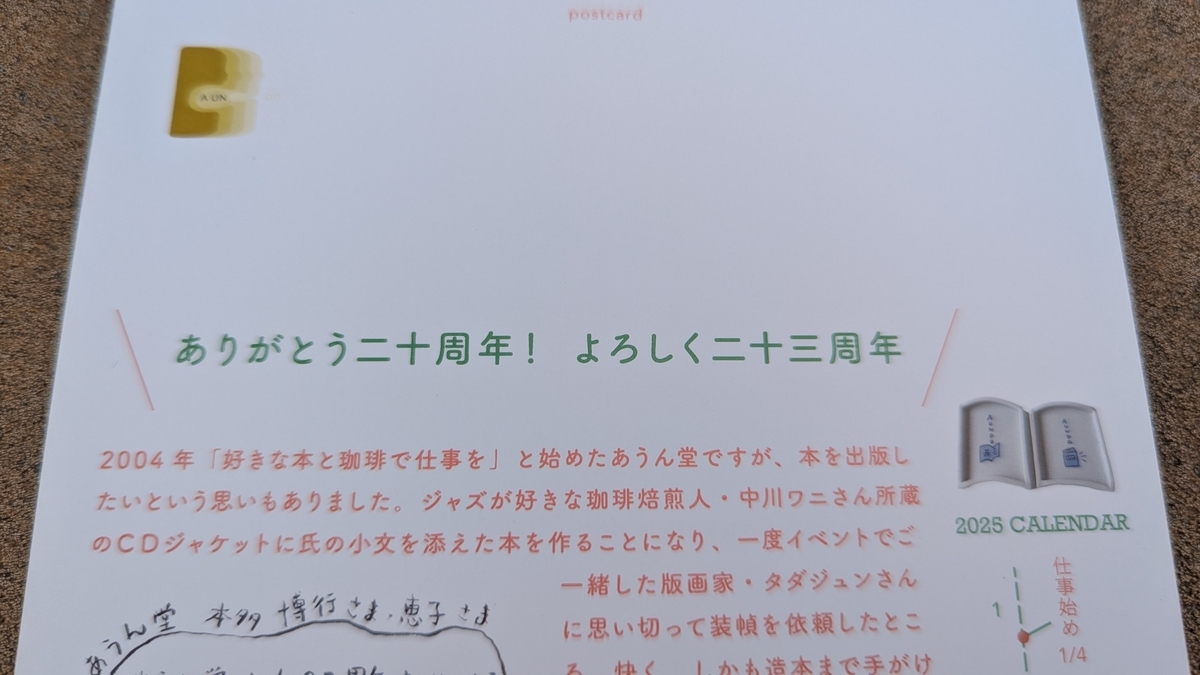 postcard
A UN
ありがとう二十周年! よろしく二十三周年
2004年「好きな本と珈琲で仕事を」と始めたあうん堂ですが、本を出版し
たいという思いもありました。ジャズが好きな珈琲焙煎人・中川ワニさん所蔵
のCDジャケットに氏の小文を添えた本を作ることになり、一度イベントでご
一緒した版画家・タダジュンさん
に思い切って装幀を依頼したとこ
ろ、快く、しかも造本まで手がけ
あうん堂 本多 博行さま・恵子さま
2025 CALENDAR
仕事始め
1/4
1